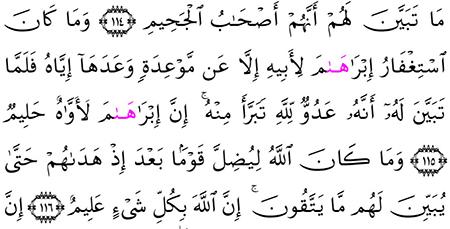 مَا تَبَيَّنَ لَهُمْ أَنَّهُمْ أَصْحَٰبُ ٱلْجَحِيمِ ﴿١١٤﴾ وَمَا كَانَ
ٱسْتِغْفَارُ إِبْرَاهَٰمَ لِأَبِيهِ إِلَّا عَن مَّوْعِدَةٍ وَعَدَهَا إِيَّاهُ فَلَمَّا
تَبَيَّنَ لَهُۥٓ أَنَّهُۥ عَدُوٌّ لِّلَّهِ تَبَرَّأَ مِنْهُ ۚ إِنَّ إِبْرَاهَٰمَ لَأَوَّٰهٌ حَلِيمٌ
﴿١١٥﴾ وَمَا كَانَ ٱللَّهُ لِيُضِلَّ قَوْمًۢا بَعْدَ إِذْ هَدَىٰهُمْ حَتَّىٰ
يُبَيِّنَ لَهُم مَّا يَتَّقُونَ ۚ إِنَّ ٱللَّهَ بِكُلِّ شَىْءٍ عَلِيمٌ ﴿١١٦﴾ إِنَّ